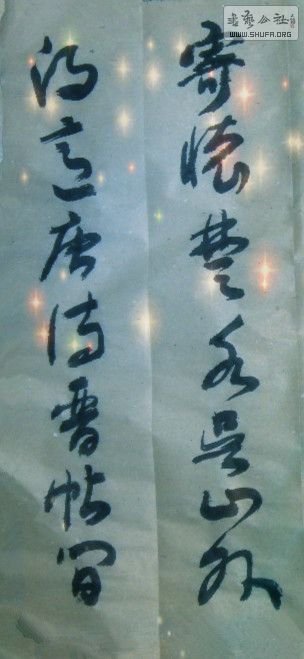 寄怀楚水吴山外
得意唐诗晋帖间
書藝公社
WWW.SHUFA.ORG